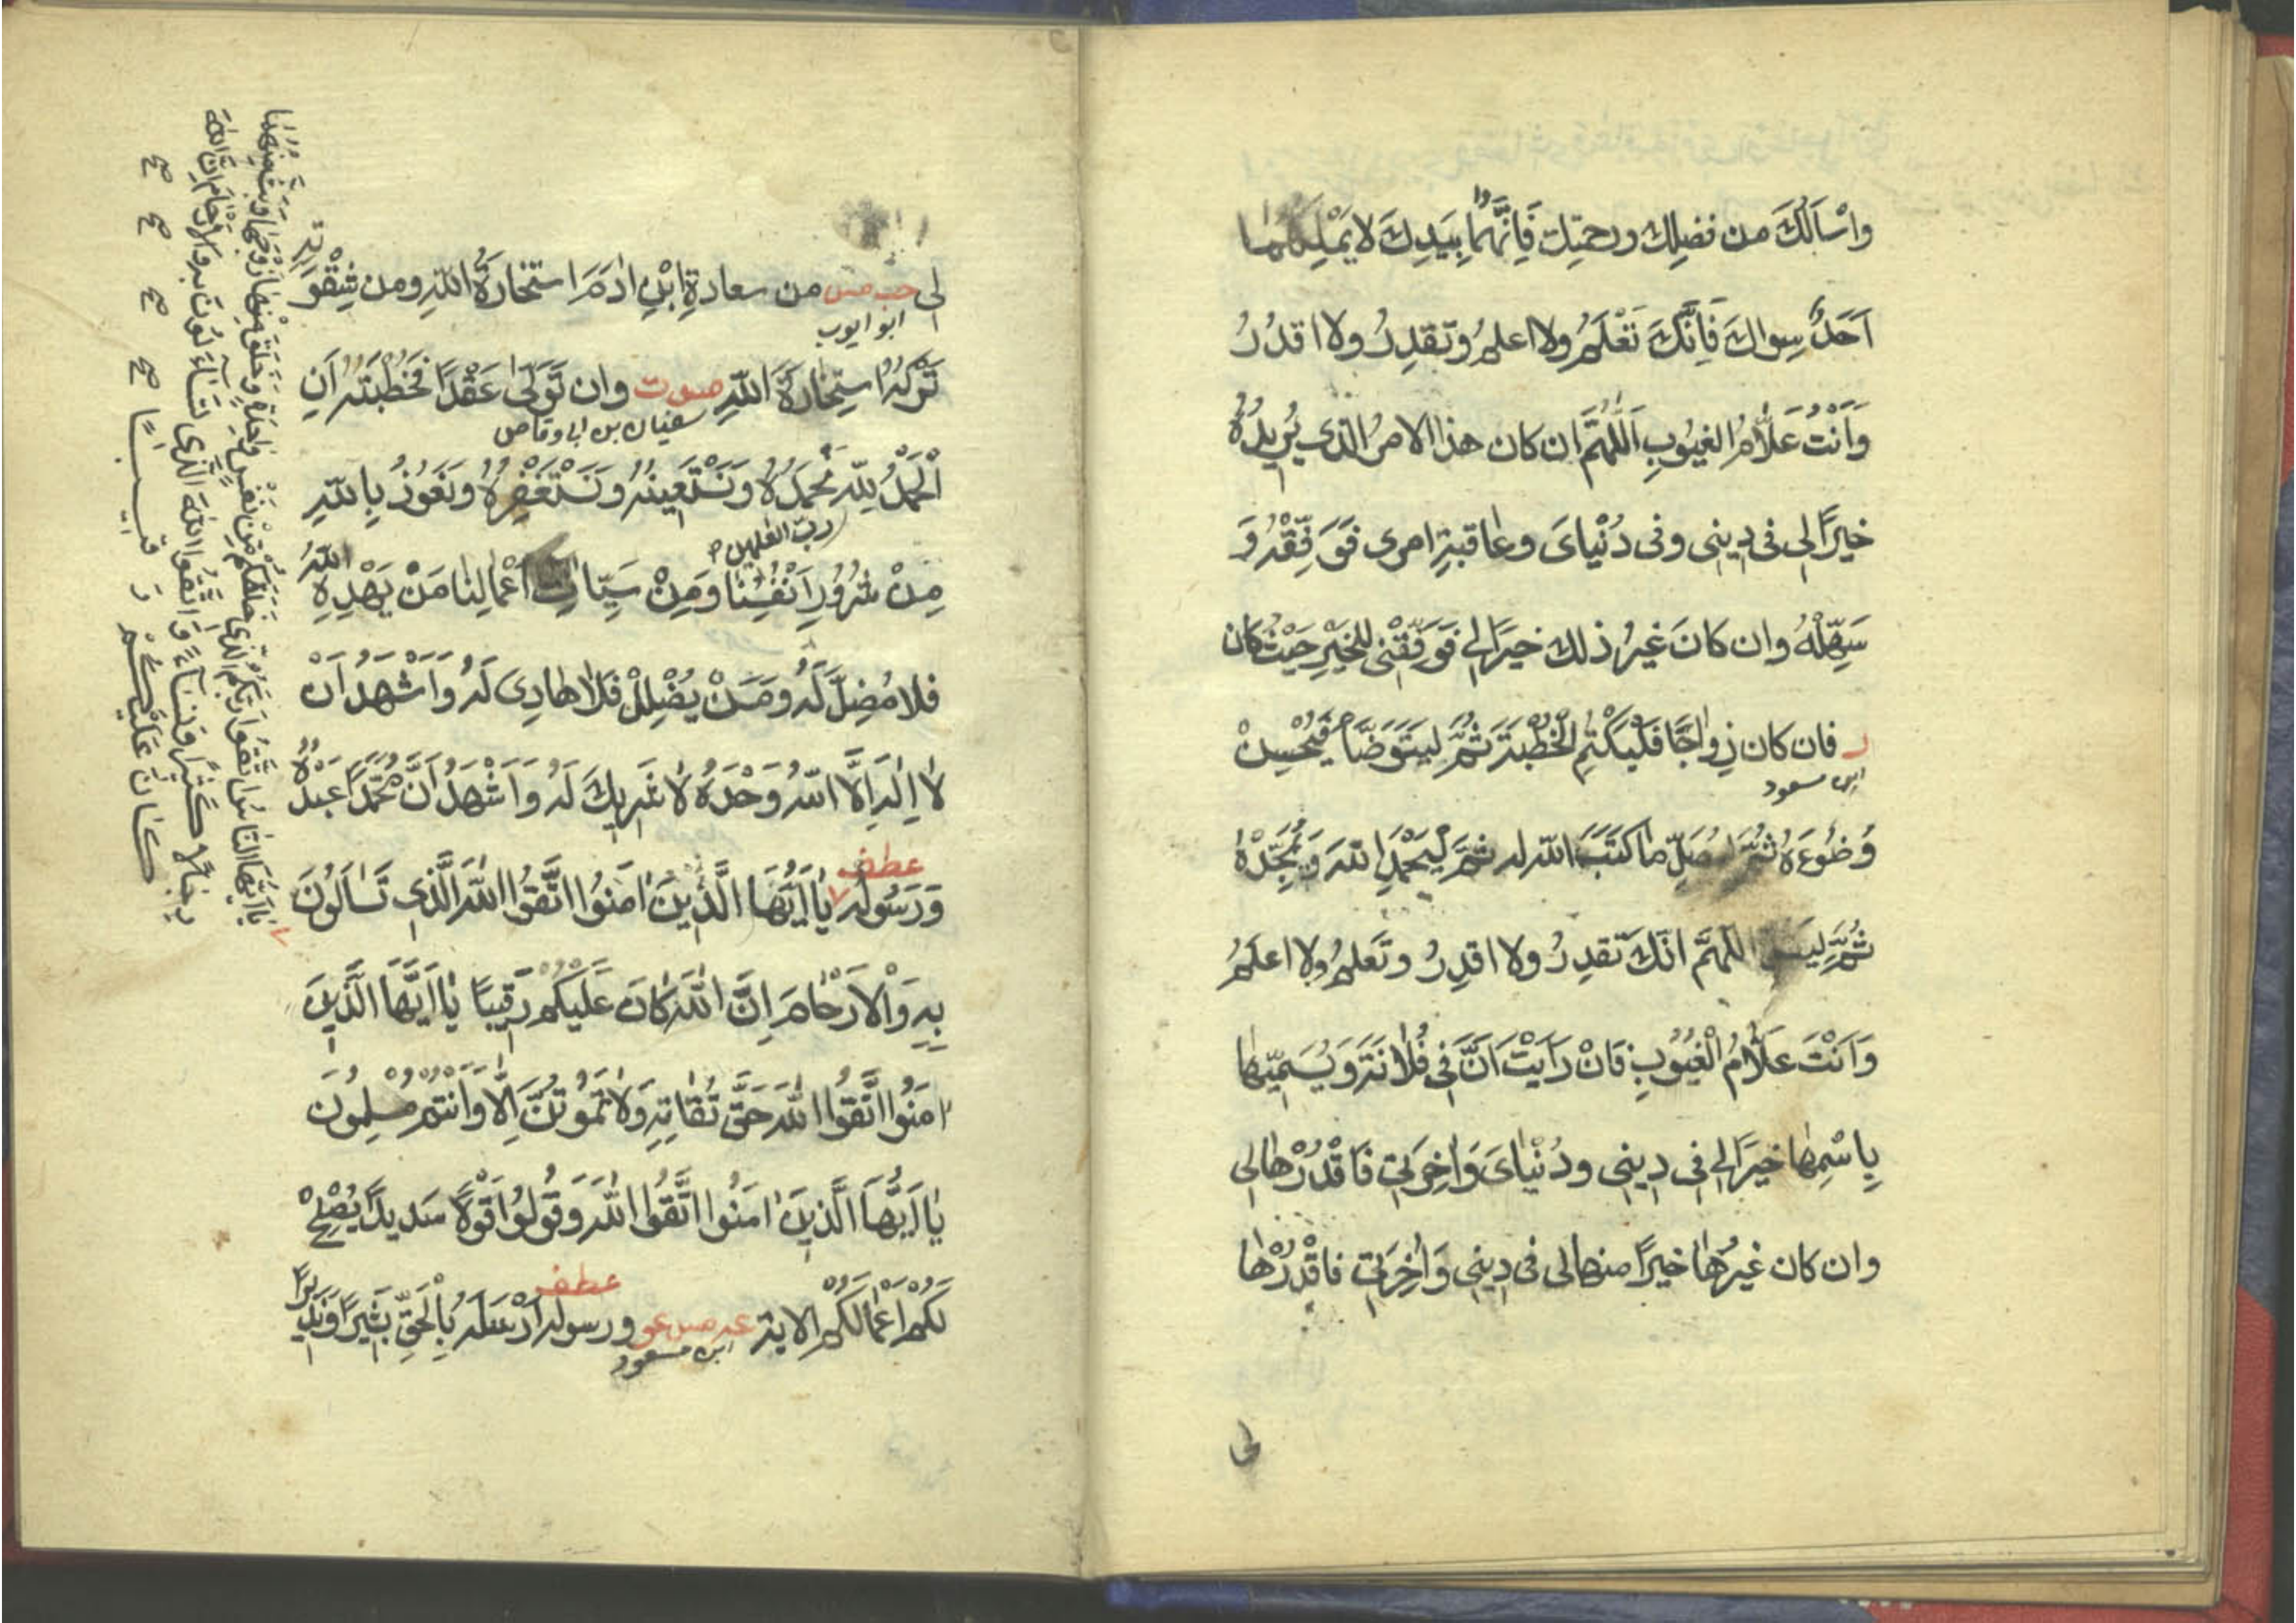 وَاَسْاَلُكَ من فضلِك ورحمتِك فَاِنَّهُمٰا بِيَدِكَ لا يَمْلِكُهُمٰا
اَحَدٌ سِواكَ فَاِنَّكَ تَعْلَمُ ولا اعلمُ وتقدِرُ ولا اقدُرُ
وَاَنْتَ عَلّامُ الغيُوبِ اَللّٰهُمَّ ان كان هذا الامرُ الذى يُرِيدُهُ
خيرًا لى فى دِينِى وفى دُنْيٰاىَ وعٰاقبةِ امرى فَوَفِّقْهُ وَ
سَهِّلْهُ وان كانَ غيرُ ذلك خيرًا لى فَوَفِّقْنى للخَيْرِ حَيْثُ كان
ر فان كان زِوٰاجًا فَلْيَكْتُمِ الْخُطْبَةَ ثُمَّ ليَتَوَضَّأْ فَيُحْسِنْ
ابن مسعود
وُضُوءَهُ ثُمَّ ليُصَلِّ مٰا كَتَبَ اللّٰه له ثمَّ لْيَحْمَدِ اللّٰهَ وَيُمَجِّدْهُ
ثُمَّ لِيَقُل اللّٰهمَّ انّكَ تَقدِرُ ولا اقدِرُ وتَعلمُ ولا اعلَمُ
وَاَنْتَ عَلّٰامُ الْغيُوبِ فَاِنْ رَاَيْتَ اَنَّ فِى فُلٰانَةَ وَيُسَمّيهٰا
بِاسْمِهٰا خيرًا لى فى دِينِى ودُنْيٰاىَ وَاٰخِرَتِى فَاقْدُرْهٰا لِى
وان كان غيرُهٰا خيرًا منها لى فى دِينِى وَاٰخِرَتِى فاقْدُرْهٰا
لى
لِى حب مس من سعادةِ ابْنِ اٰدَمَ استخارَةُ اللّٰهِ ومن شِقْوَتِهِ
ابو ايوب
تَرْكُهُ اسْتِخارَةَ اللّٰهِ مس ت وان تَوَلّٰى عَقْدًا فَخُطْبَتُهُ اَنِ
سفيان بن ابى وقاص
الْحَمْدُ لِلّٰهِ نَحْمَدُهُ وَنَسْتَعِينُهُ وَنَسْتَغْفِرُهُ وَنَعُوذُ بِاللّٰهِ
ربّ العٰلمين
مِنْ شُرُورِ اَنْفُسِنٰا وَمِنْ سَيِّاٰتِ اَعْمٰالِنٰا مَنْ يَهْدِهِ اللّٰهُ
فلا مُضِلَّ لَهُ ومَنْ يُضْلِلْ فَلٰا هٰادِىَ لَهُ وَاَشْهَدُ اَنْ
لٰا اِلٰهَ اِلَّا اللّٰهُ وَحْدَهُ لٰا شَرِيكَ لَهُ وَاَشْهَدُ اَنَّ مُحَمَّدًا عَبْدُهُ
عطف
وَرَسُولُه يٰا اَيُّهَا الَّذِينَ اٰمَنُوا اتَّقُوا اللّٰهَ الَّذِى تَسٰاءَلُونَ
بِهِ وَالْاَرْحٰامَ اِنَّ اللّٰهَ كٰانَ عَلَيْكُمْ رَقِيبًا يٰا اَيُّهَا الَّذِينَ
اٰمَنُوا اتَّقُوا اللّٰهَ حَقَّ تُقٰاتِهِ وَلٰا تَمُوتُنَّ اِلّٰا وَاَنْتُمْ مُسْلِمُونَ
يٰا اَيُّهَا الَّذِينَ اٰمَنُوا اتَّقُوا اللّٰهَ وَقُولُوا قَوْلًا سَدِيدًا يُصْلِحْ
عطف
لَكُمْ اَعْمٰالَكُمْ الاية عه مس عو ورسوله اَرْسَلَهُ بِالْحَقِّ بَشِيرًا وَنَذِيرًا
ابن مسعود
يٰا اَيُّهَا النّٰاسُ اتَّقُوا رَبَّكُمُ الَّذِى خَلَقَكُمْ مِنْ نَفْسٍ وٰاحِدَةٍ وَخَلَقَ مِنْهٰا زَوْجَهٰا وَبَثَّ مِنْهُمٰا
رِجٰالًا كَثِيرًا وَنِسٰاءً وَاتَّقُوا اللّٰهَ الَّذِى تَسٰاءَلُونَ بِهِ وَالْاَرْحٰامَ اِنَّ اللّٰهَ
كٰانَ عَلَيْكُمْ رَقِيبًا صح صح صح صح